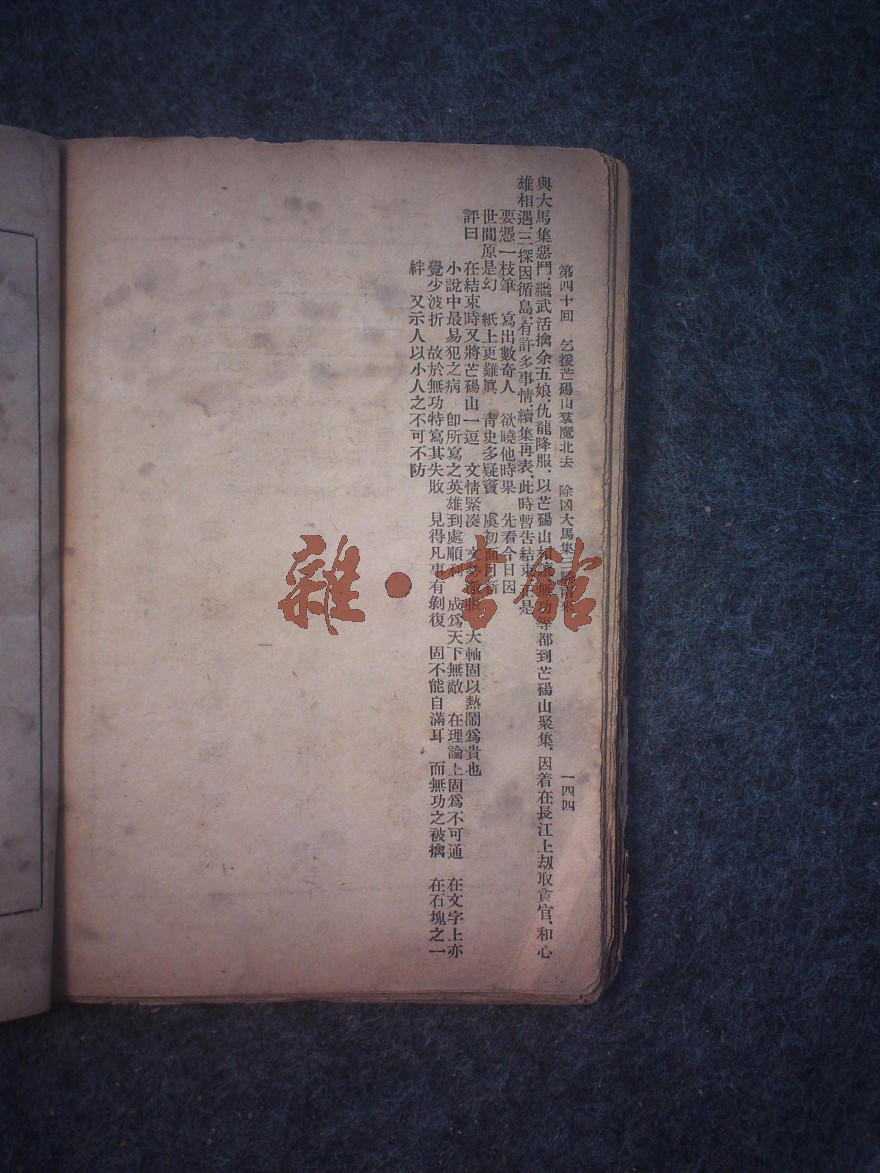 第四十回 乞援芒碭山羣魔北去 除凶大馬集 一四四
與大馬集惡鬥、繼武活擒余五娘、仇龍降服、以芒碭山 無功等都到芒碭山聚集、因着在長江上刼取貪官、和心
雄相遇、三探因循島、有許多事情、續集再表、此時暫告結束、 是
要憑一枝筆 寫出數奇人 欲曉他時果 先看今日因
世間原是幻 紙上更難眞 靑史多疑竇 虞初面目新
評曰 在結束時又將芒碭山一逗 文情緊凑 文 大軸固以熱鬧爲貴也
小說中最易犯之病 卽所寫之英雄到處順利 成爲天下無敵 在理論上固爲不可通 在文字上亦
覺少波折 故於無功特寫其失敗 見得凡事有剝復 固不能自滿耳 而無功之被擒 在石塊之一
絆 又示人以小人之不可不防
雜·書館